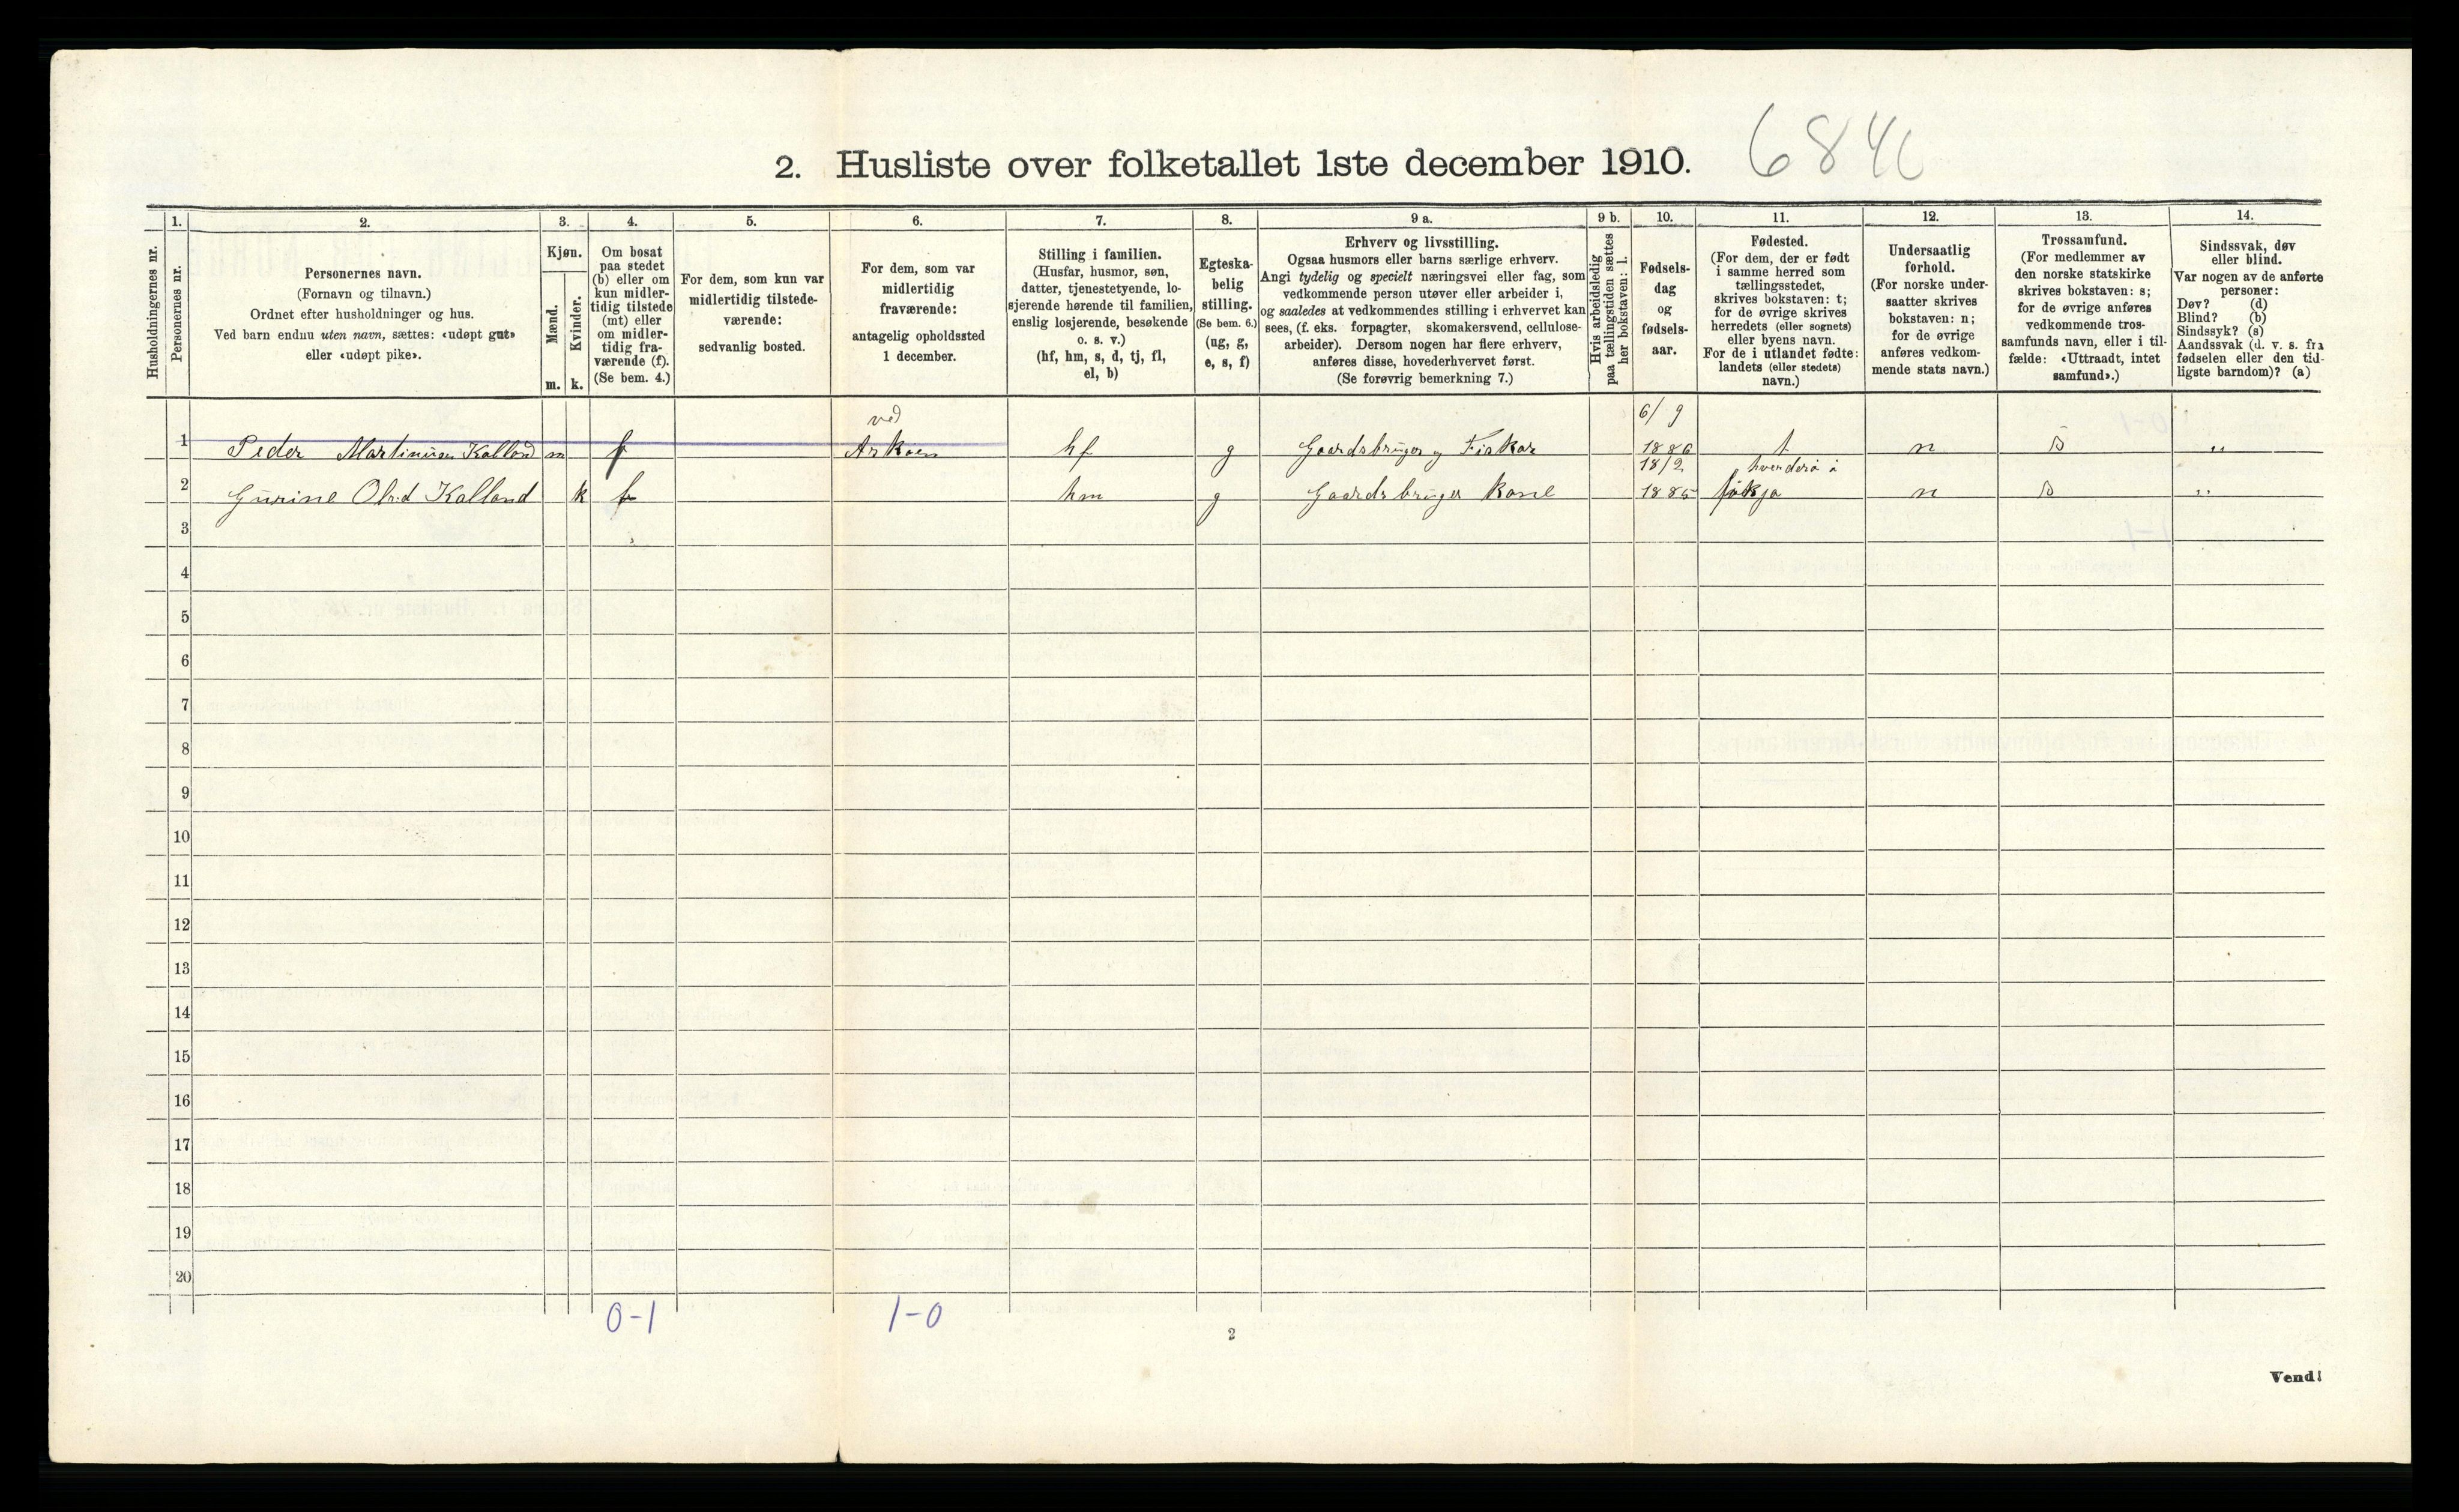 2. Husliste over folketallet 1ste december 1910.
1. 2. 3. 4. 5. 6. 7. 8. 9 a. 9 b. 10. 11. 12. 13. 14.
Husholdningernes nr.
Personernes nr.
Personernes navn.
(Fornavn og tilnavn.)
Ordnet efter husholdninger og hus.
Ved barn endnu uten navn, sættes: «udøpt gut»
eller «udøpt pike».
Kjøn.
Mænd.
Kvinder.
m. k.
Om bosat
paa stedet
(b) eller om
kun midler-
tidig tilstede
(mt) eller
om midler-
tidig fra-
værende (f).
(Se bem. 4.)
For dem, som kun var
midlertidig tilstede-
værende:
sedvanlig bosted.
For dem, som var
midlertidig
fraværende:
antagelig opholdssted
1 december.
Stilling i familien.
(Husfar, husmor, søn,
datter, tjenestetyende, lo-
sjerende hørende til familien,
enslig losjerende, besøkende
o. s. v.)
(hf, hm, s, d, tj, fl,
el, b)
Egteska-
belig
stilling.
(Se bem. 6.)
(ug, g,
e, s, f)
Erhverv og livsstilling.
Ogsaa husmors eller barns særlige erhverv.
Angi tydelig og specielt næringsvei eller fag, som
vedkommende person utøver eller arbeider i,
og saaledes at vedkommendes stilling i erhvervet kan
sees, (f. eks. forpagter, skomakersvend, cellulose-
arbeider). Dersom nogen har flere erhverv,
anføres disse, hovederhvervet først.
(Se forøvrig bemerkning 7.)
Hvis arbeidsledig
paa tællingstiden sættes
her bokstaven: l.
Fødsels-
dag
og
fødsels-
aar.
Fødested.
(For dem, der er født
i samme herred som
tællingsstedet,
skrives bokstaven: t;
for de øvrige skrives
herredets (eller sognets)
eller byens navn.
For de i utlandet fødte:
landets (eller stedets)
navn.)
Undersaatlig
forhold.
(For norske under-
saatter skrives
bokstaven: n;
for de øvrige
anføres vedkom-
mende stats navn.)
Trossamfund.
(For medlemmer av
den norske statskirke
skrives bokstaven: s;
for de øvrige anføres
vedkommende tros-
samfunds navn, eller i til-
fælde: «Uttraadt, intet
samfund».)
Sindssvak, døv
eller blind.
Var nogen av de anførte
personer:
Døv? (d)
Blind? (b)
Sindssyk? (s)
Aandssvak (d. v. s. fra
fødselen eller den tid-
ligste barndom)? (a)
ved 6/9
1 Peder Martinusen Kalland m f hf g Gaardsbruger og Fisker 1886 t n s "
18/2
2 Gurine Olsd Kalland k hm g Gaardsbruger Kone 1885 n s "
3
4
5
6
7
8
9
10
11
12
13
14
15
16
17
18
19
20
0-1 1-0
2
Vend!